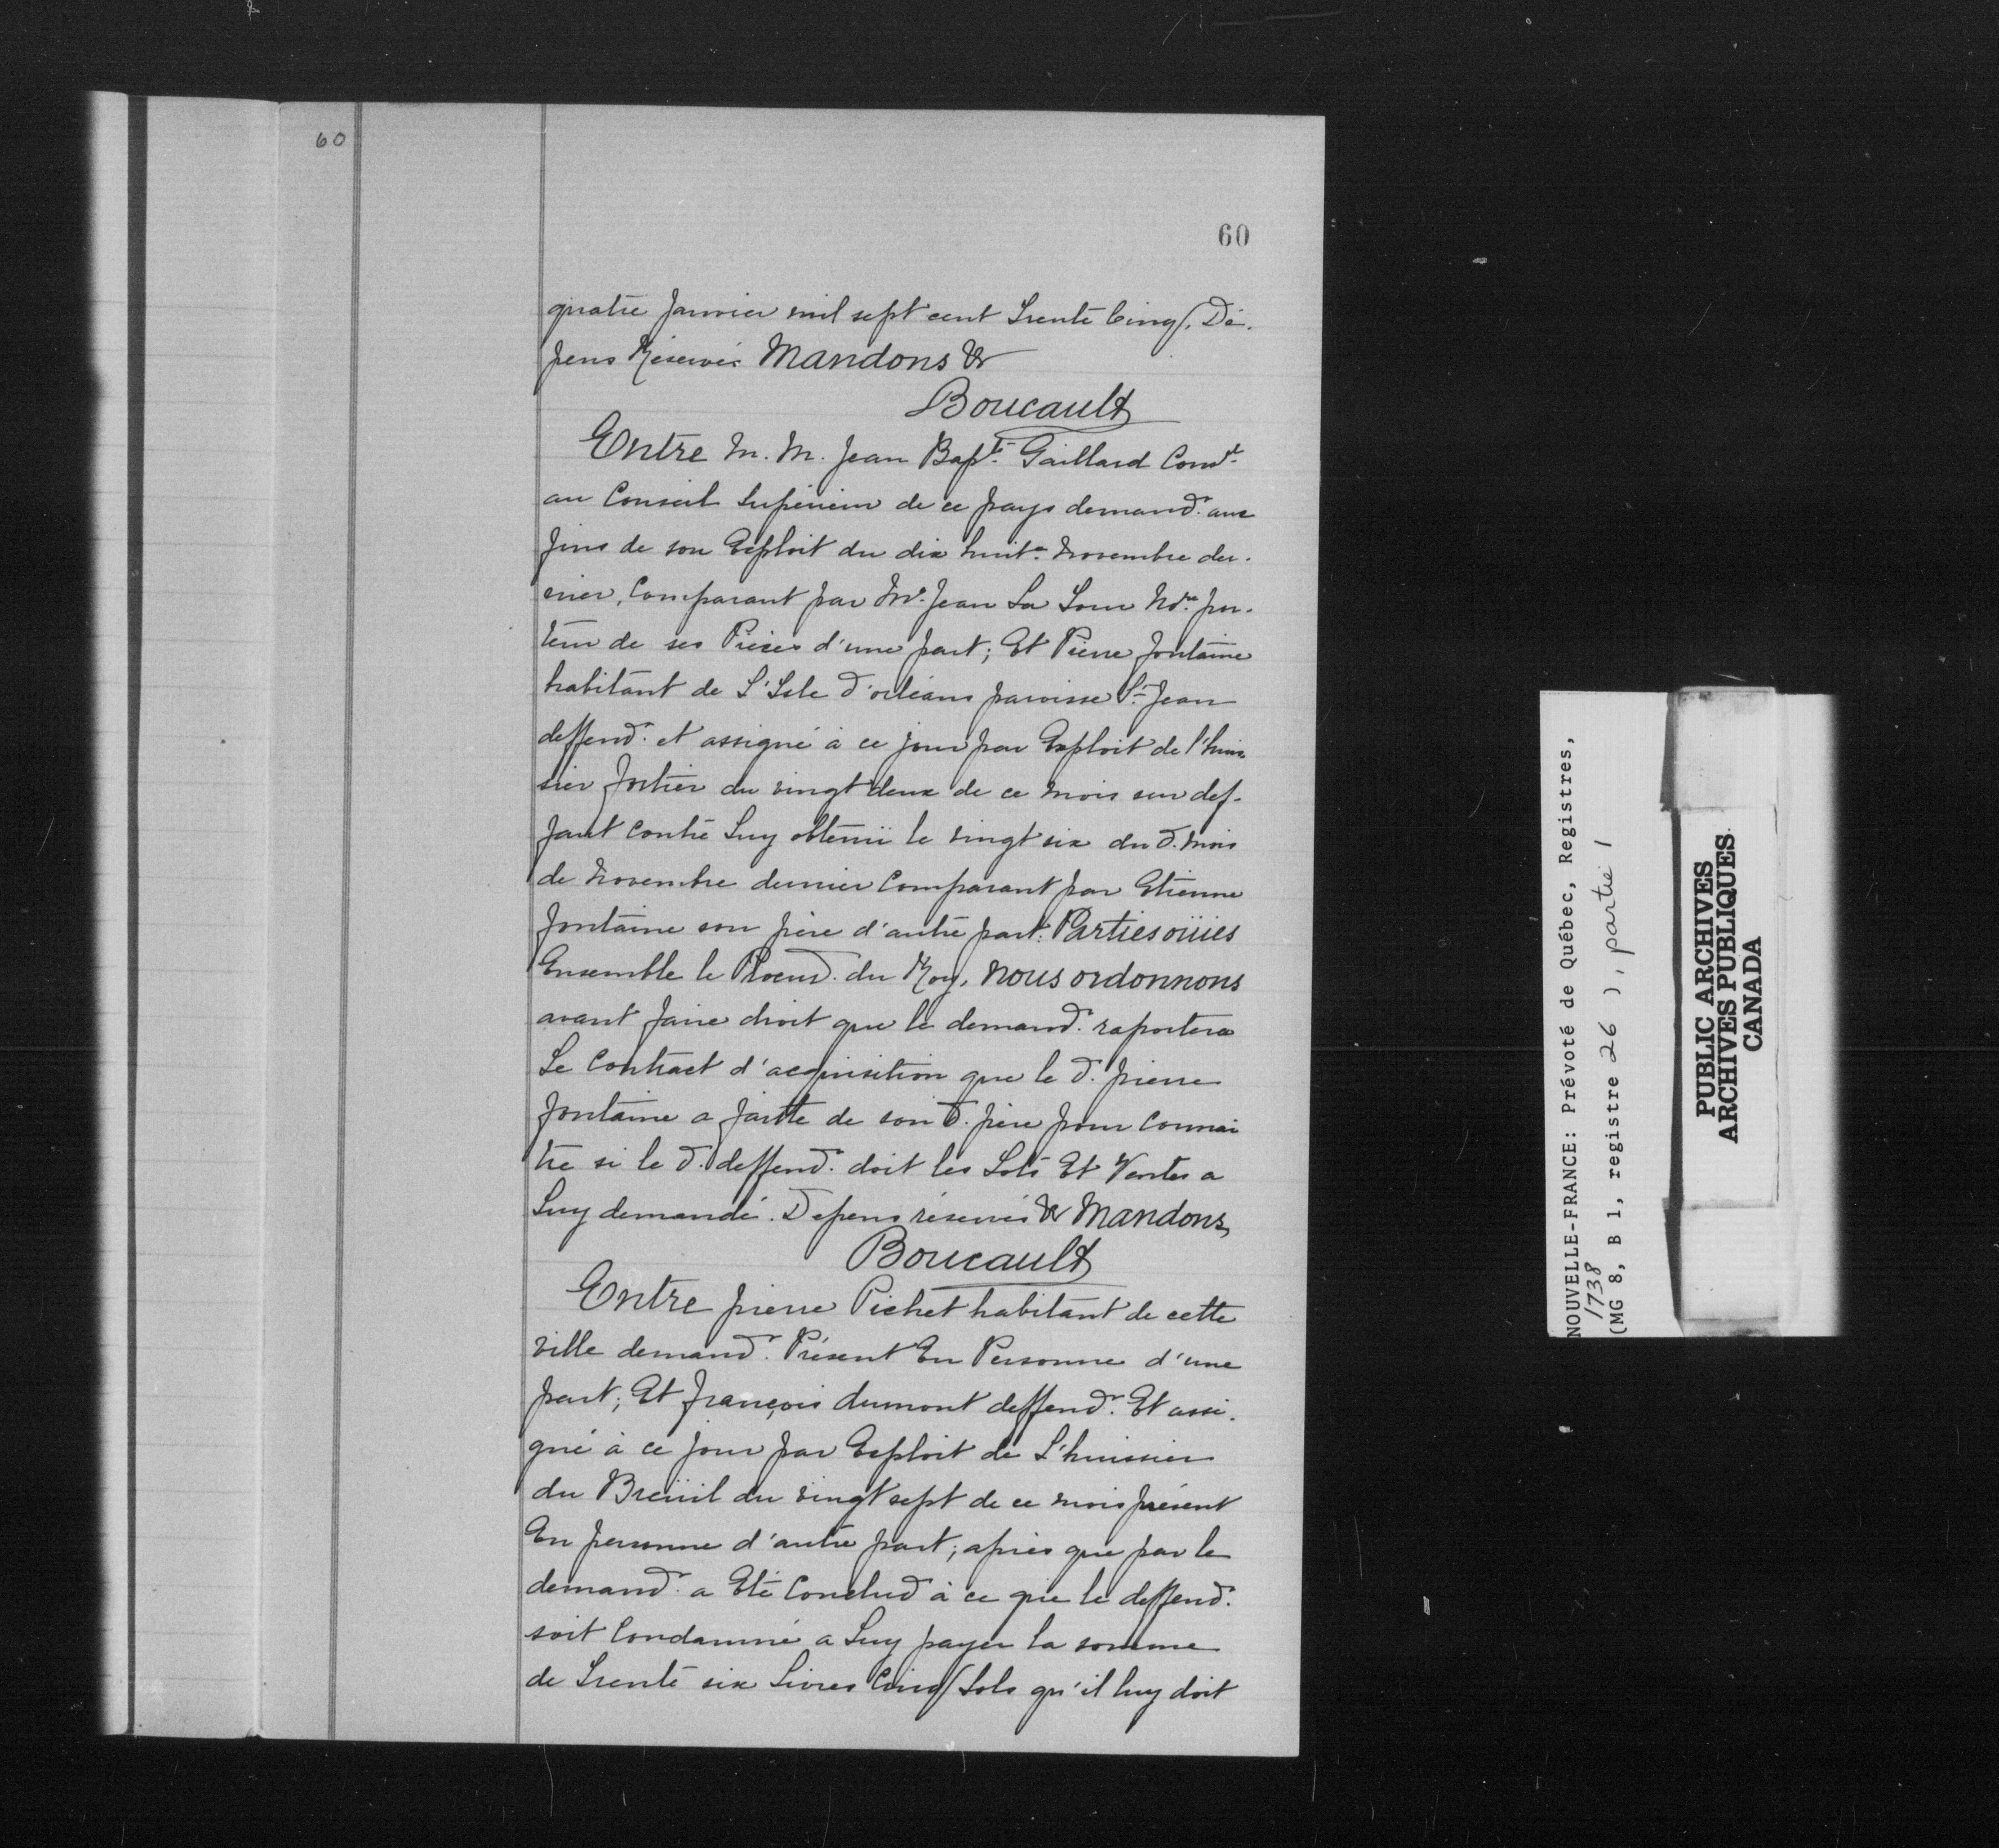 60
60
quatre janvier mil sept cent Trente Cinq. Dé-
pens Réservés Mandons &
Boucault
Entre M. M. Jean Bapte. Gaillard Conser
au Conseil Supérieur de ce pays demandr. aux
fins de son Exploit du dix huite. Novembre der-
nier, Comparant par Me. Jean La Tour Nore. por-
teur de ses Pièces d'une part; Et Pierre fontaine
habitant de L'Isle d'orléans paroisse St. Jean
deffendr. et assigné à ce jour par Exploit de l'huis
sier fortier du vingt deux de ce mois sur def-
faut contre Luy obtenü le vingt six du d. mois
de Novembre dernier Comparant par Etienne
fontaine son père d'autre part. Parties oüies
Ensemble le Procurr. du Roy, nous ordonnons
avant faire droit que le demandr. raportera
Le Contract d'acquisition que le d. pierre
fontaine a faitte de son d. père pour Connai
tre si le d. deffendr. doit les Lots Et Ventes a
Luy demandé. Depens réservés & Mandons
Boucault
Entre pierre Pichet habitant de cette
ville demandr. Présent En Personne d'une
part; Et françois dumont deffendr. Et assi-
gné à ce jour par Exploit de L'huissier
du Breüil du vingt sept de ce mois présent
En personne d'autre part; après que par le
demandr. a Eté Conclud à ce que le deffendr.
soit Condamné a Luy payer la somme
de Trente six Livres Cinq Sols qu'il luy doit
NOUVELLE-FRANCE: Prévoté de Québec, Registres,
1738
(MG 8, B 1, registre 26 ), partie 1
PUBLIC ARCHIVES
ARCHIVES PUBLIQUES
CANADA